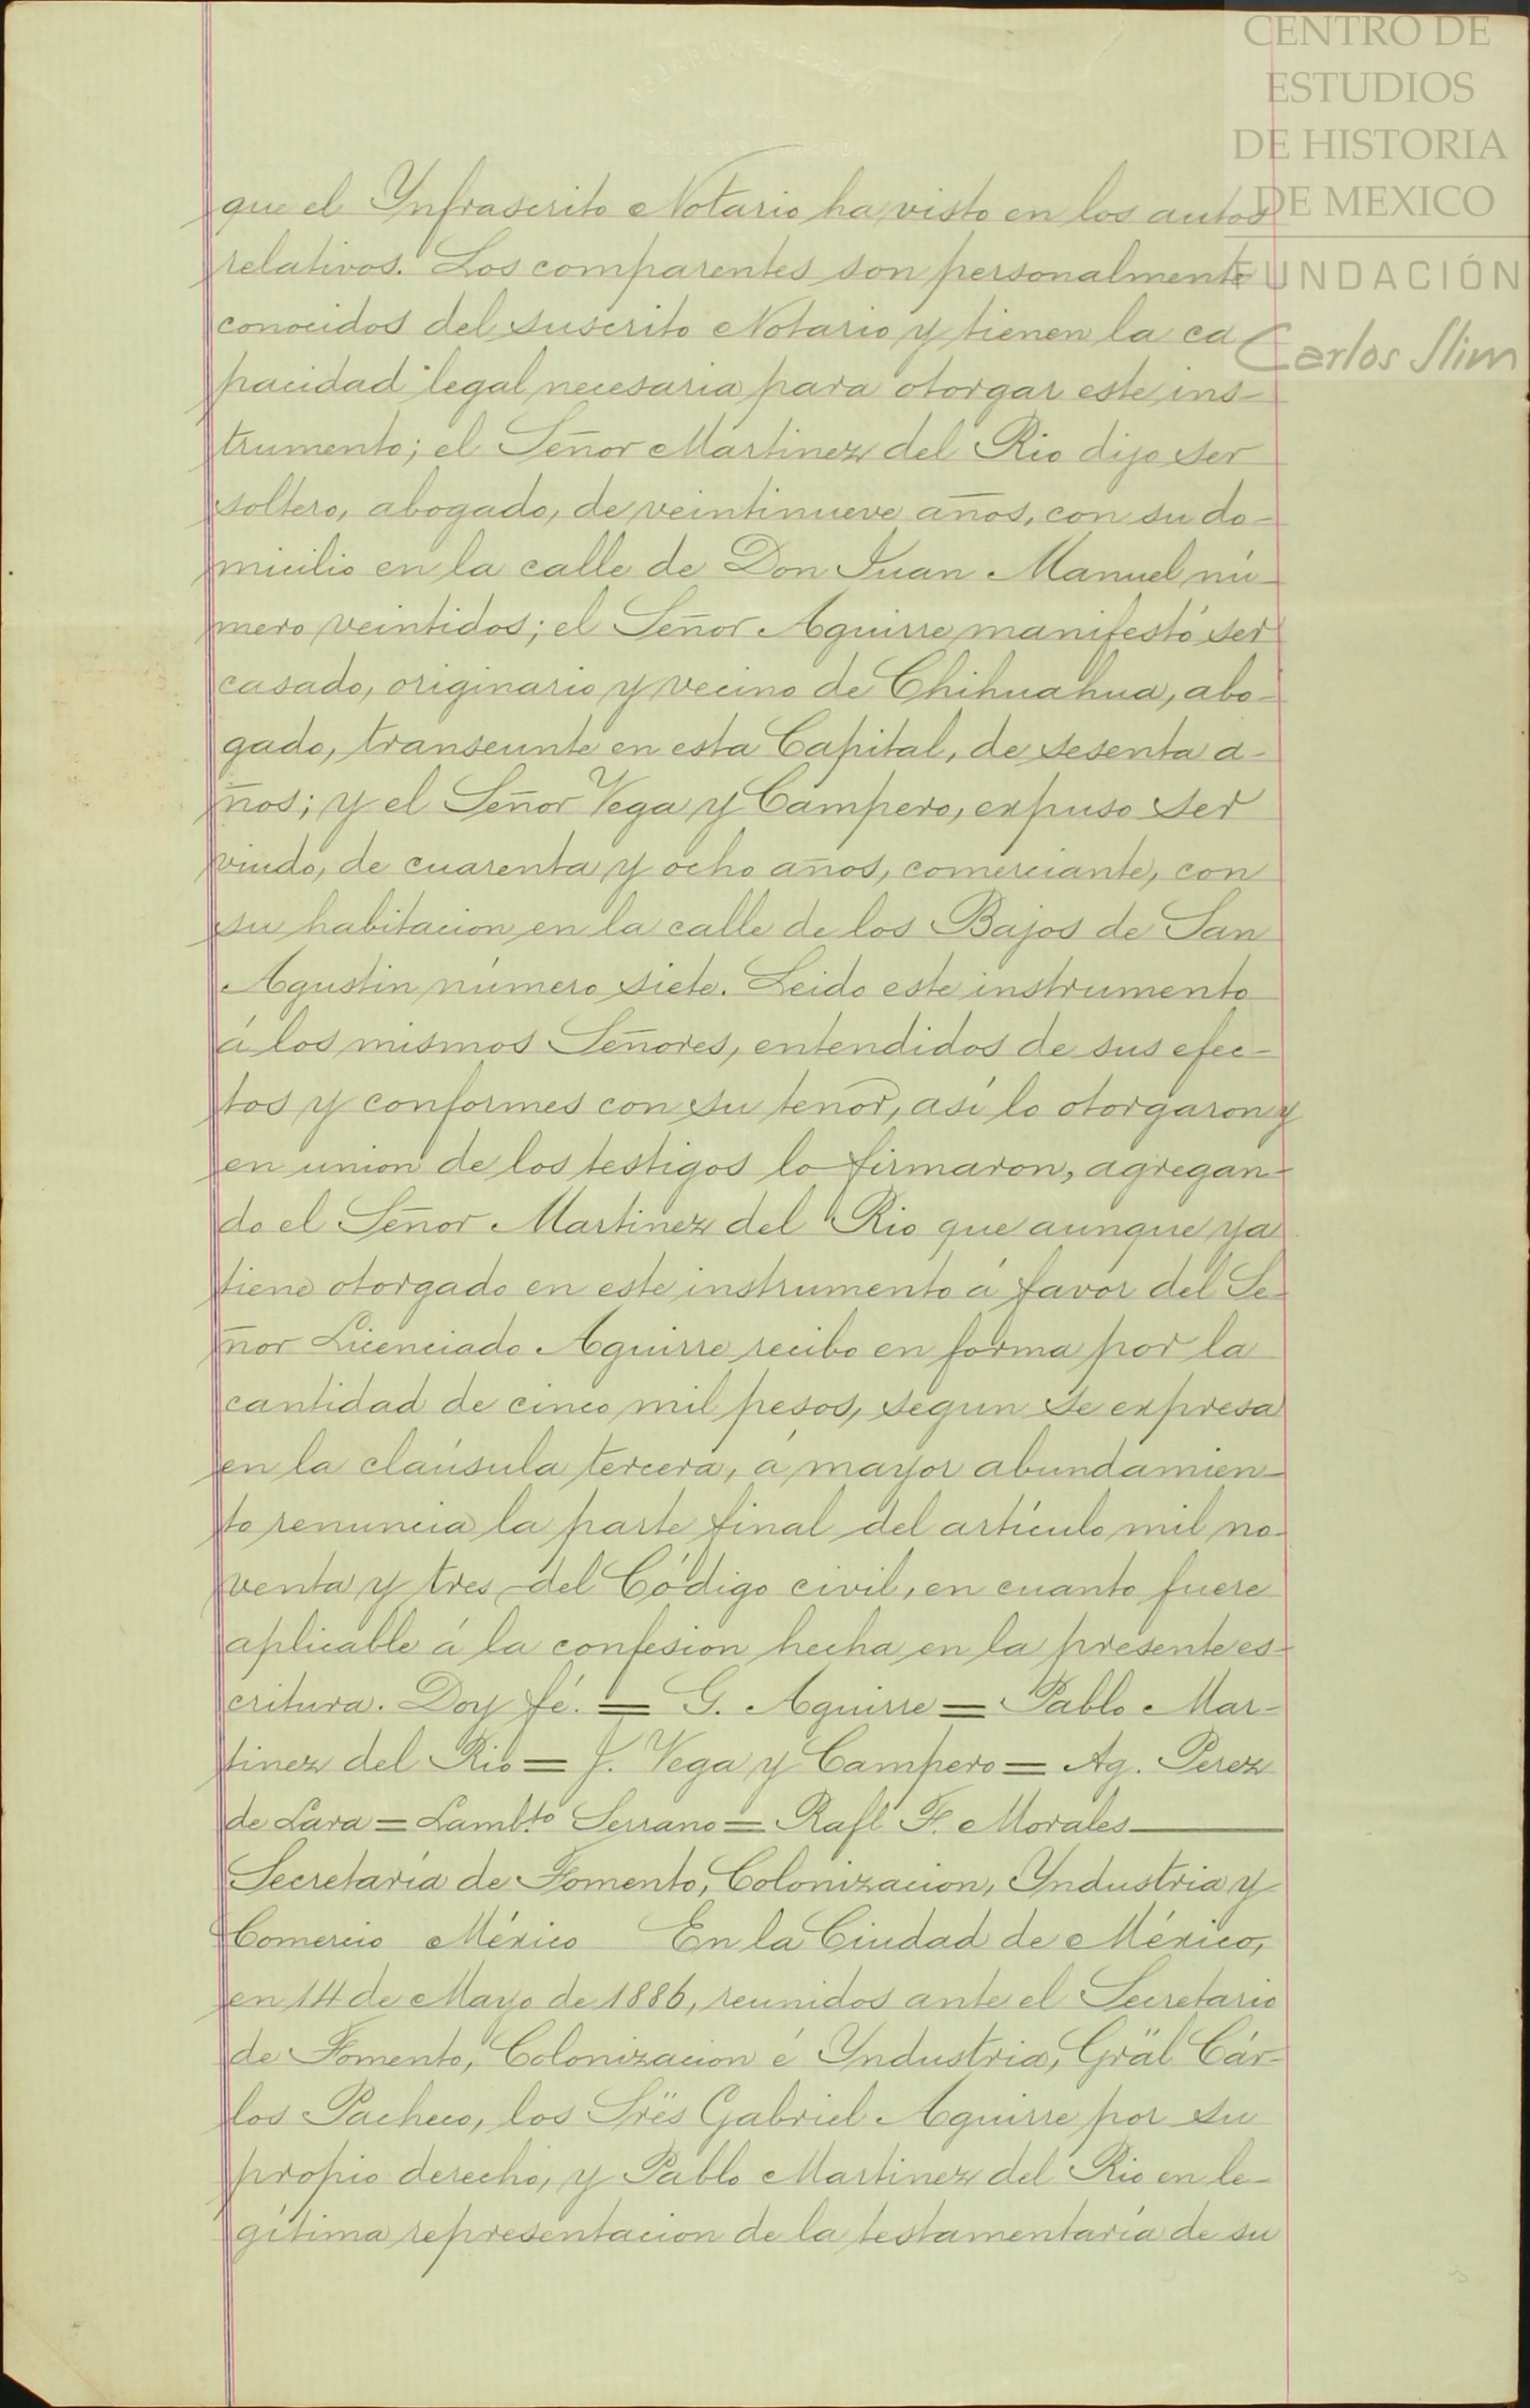 CENTRO DE
ESTUDIOS
DE HISTORIA
DE MEXICO
FUNDACIÓN
Carlos Slim
que el Ynfrascrito Notario ha visto en los autos
relativos. Los comparentes son personalmente
conocidos del suscrito Notario y tienen la ca
pacidad legal necesaria para otorgar este ins-
trumento; el Señor Martinez del Rio dijo ser
soltero, abogado, de veintinueve años, con su do-
micilio en la calle de Don Juan Manuel nú-
mero veintidos; el Señor Aguirre manifestó ser
casado, originario y vecino de Chihuahua, abo-
gado, transeunte en esta Capital, de sesenta a-
ños; y el Señor Vega y Campero, expuso ser
viudo, de cuarenta y ocho años, comerciante, con
su habitacion en la calle de los Bajos de San
Agustin número siete. Leido este instrumento
á los mismos Señores, entendidos de sus efec-
tos y conformes con su tenor, así lo otorgaron y
en union de los testigos lo firmaron, agregan-
do el Señor Martinez del Rio que aunque ya
tiene otorgado en este instrumento á favor del Se-
ñor Licenciado Aguirre recibo en forma por la
cantidad de cinco mil pesos, segun se expresa
en la claúsula tercera, á mayor abundamien-
to renuncia la parte final del artículo mil no-
venta y tres del Código civil, en cuanto fuere
aplicable á la confesion hecha en la presente es-
critura. Doy fé. = G. Aguirre = Pablo Mar-
tinez del Rio = J. Vega y Campero = Ag. Perez
de Lara = Lamb.to Serrano = Rafl F. Morales
Secretaría de Fomento, Colonizacion, Yndustria y
Comercio México En la Ciudad de México,
en 14 de Mayo de 1886, reunidos ante el Secretario
de Fomento, Colonizacion é Yndustria, Gräl Cár-
los Pacheco, los Srës Gabriel Aguirre por su
propio derecho, y Pablo Martinez del Rio en le-
gítima representacion de la testamentaría de su